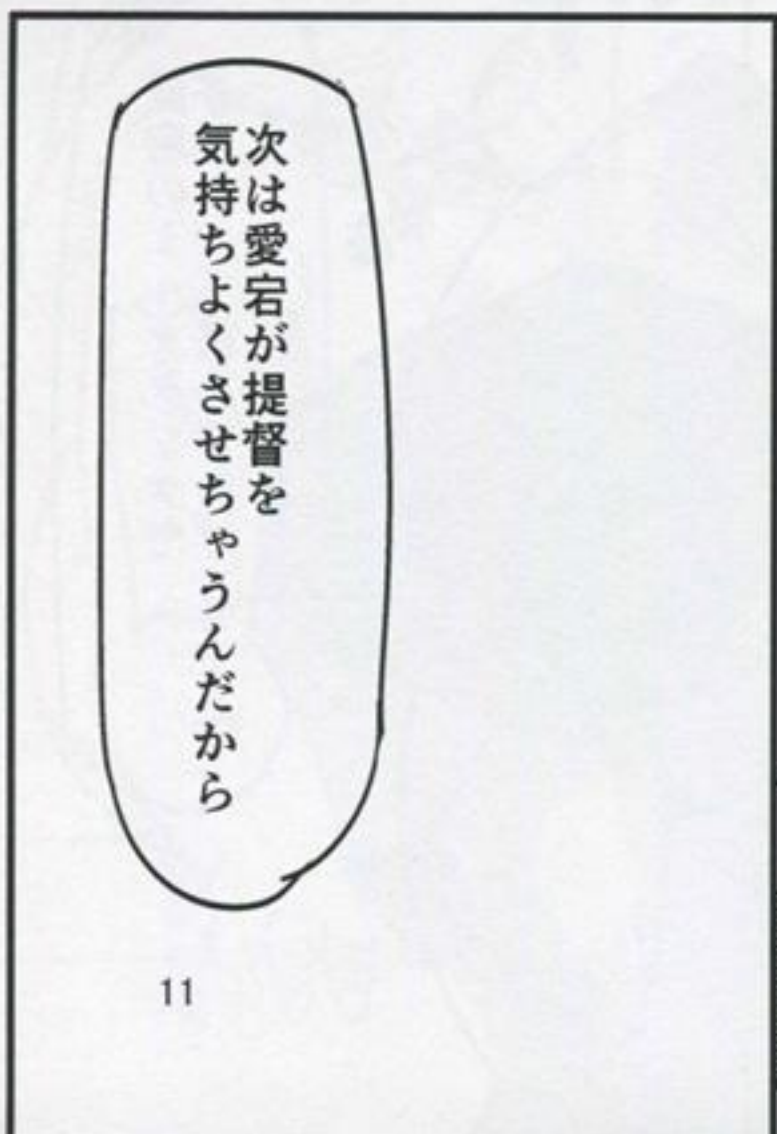 次は愛宕が提督を
気持ちよくさせちゃうんだから
11